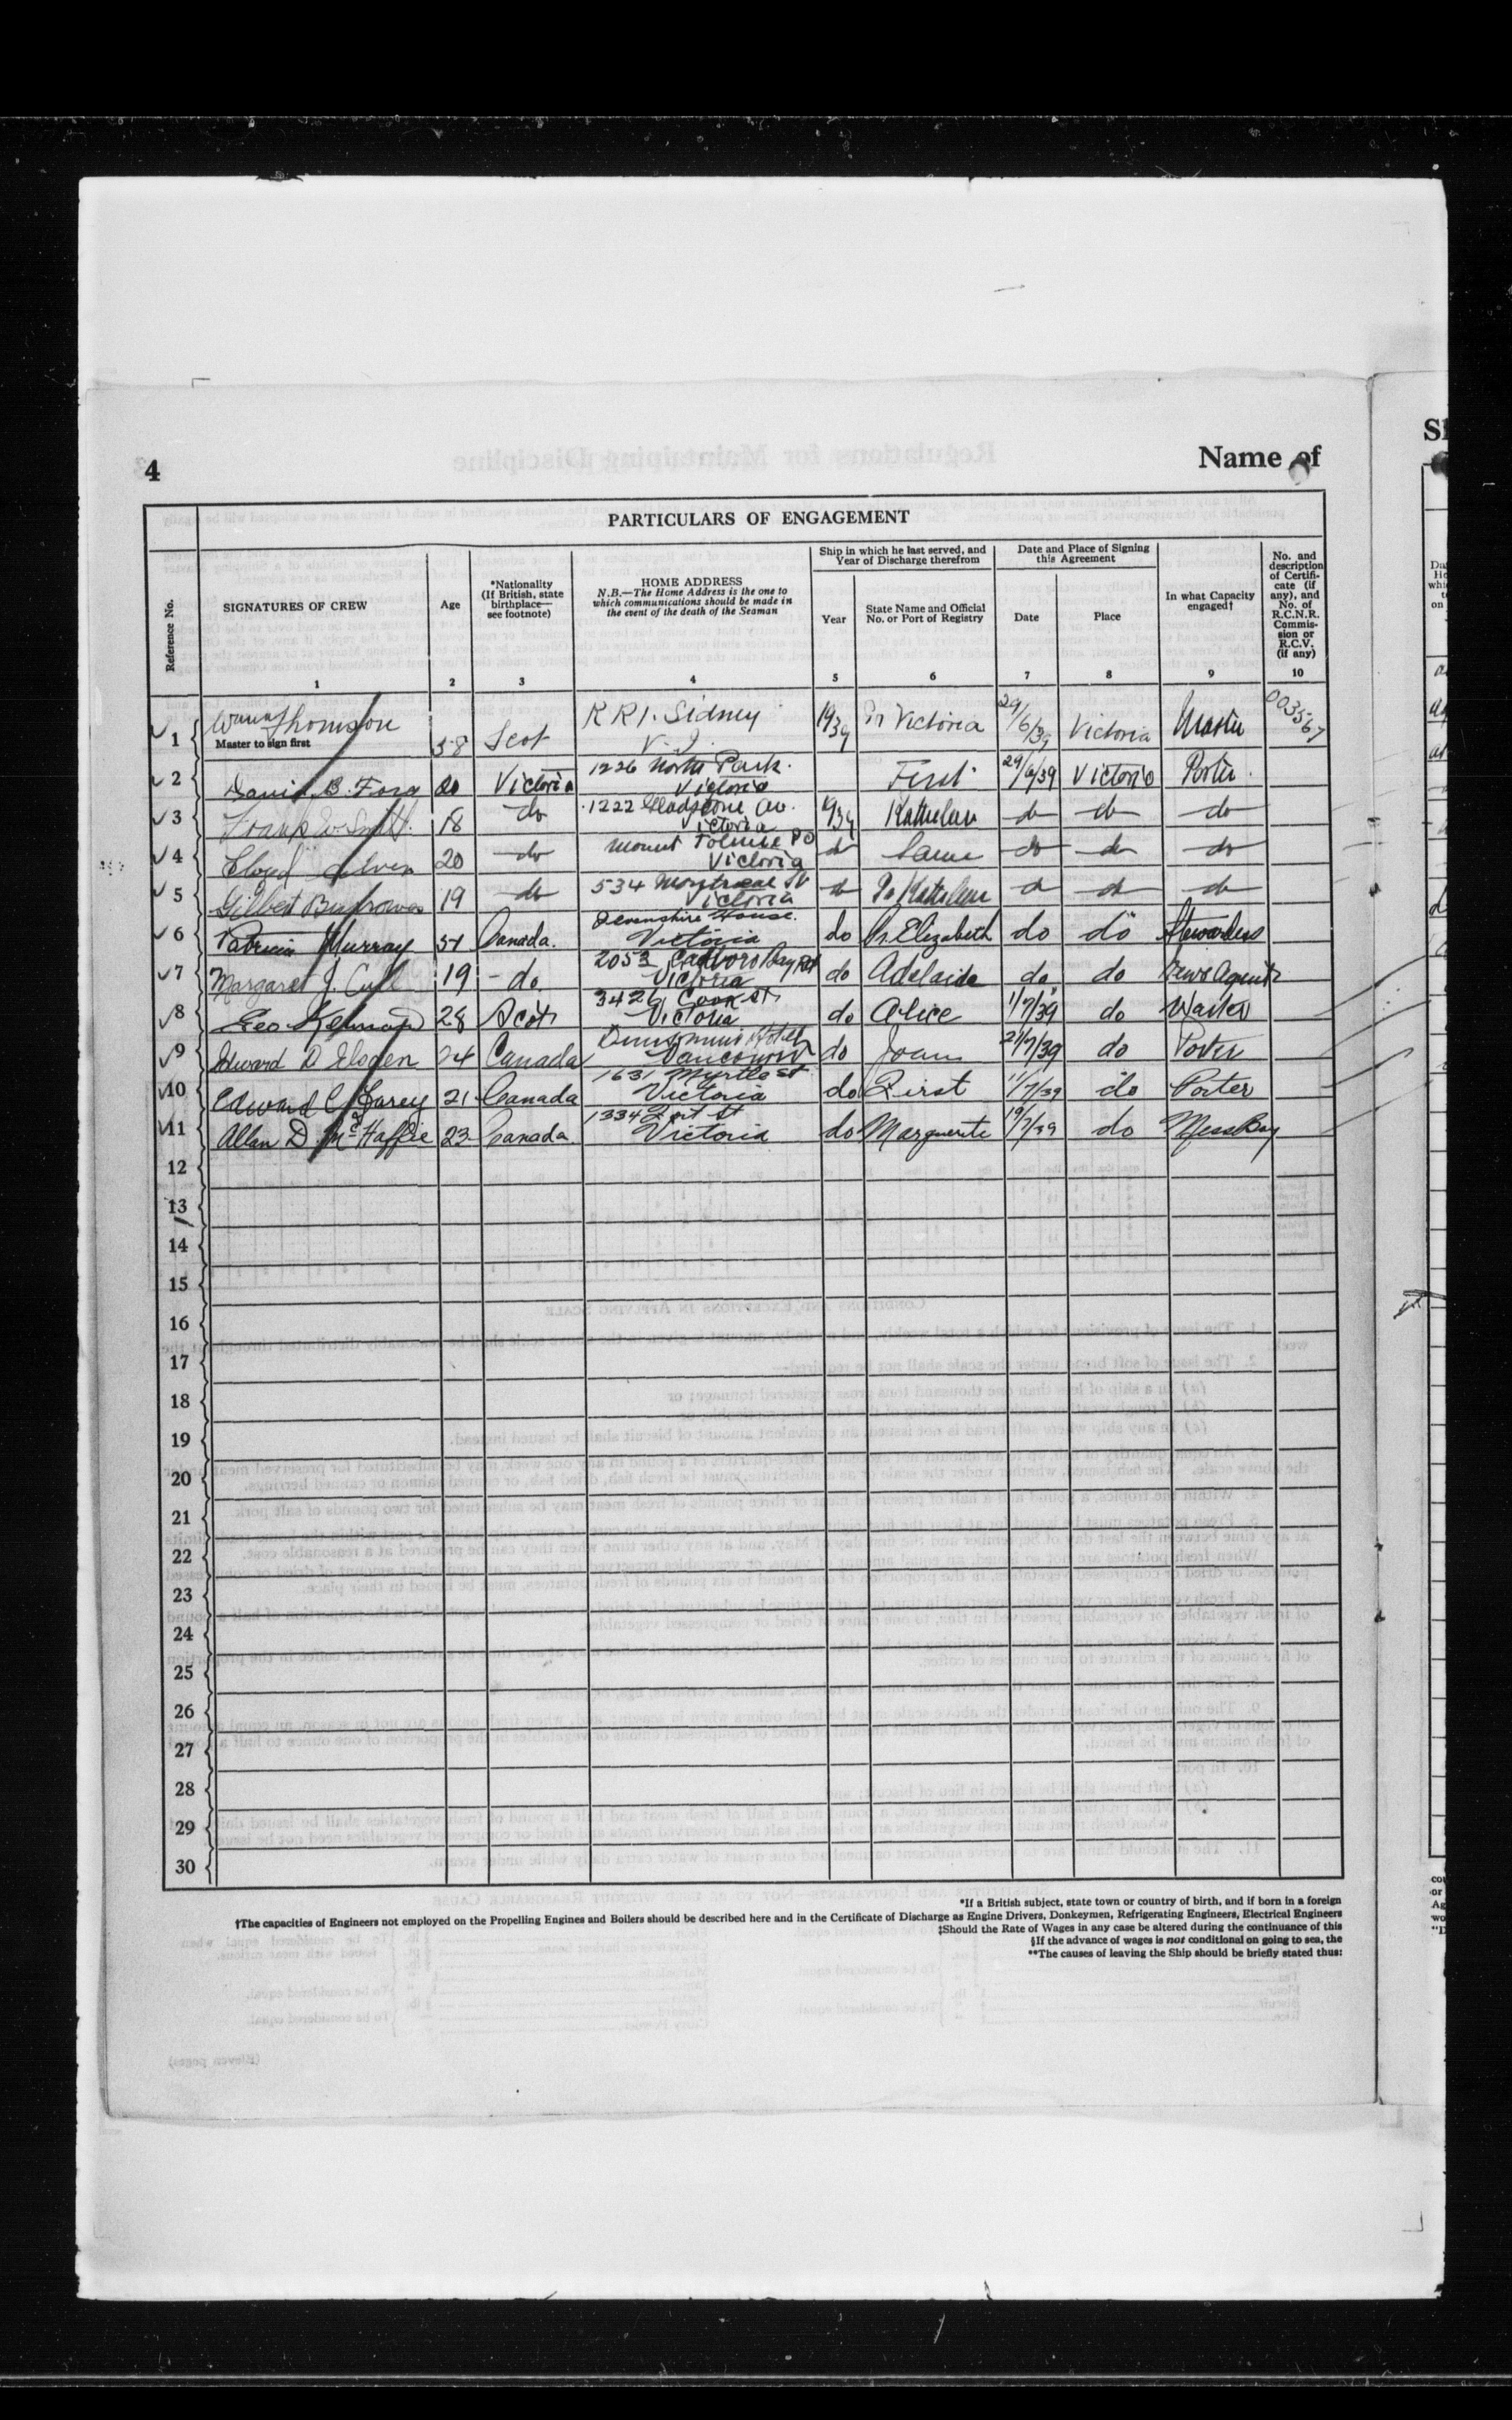 4
Name of
PARTICULARS OF ENGAGEMENT
Reference No.
SIGNATURES OF CREW
1
Age
2
*Nationality
(If British, state
birthplace—
see footnote)
3
HOME ADDRESS
N.B.—The Home Address is the one to
which communications should be made in
the event of the death of the Seaman
4
Ship in which he last served, and
Year of Discharge therefrom
Year
5
State Name and Official
No. or Port of Registry
6
Date and Place of Signing
this Agreement
Date
7
Place
8
In what Capacity
engaged†
9
No. and
description
of Certifi-
cate (if
any), and
No. of
R.C.N.R.
Commis-
sion or
R.C.V.
(if any)
10
1 Thomson 58 Scot R R 1. Sidney V. I. 1939 Pr Victoria 29/6/39 Victoria Master 003567
Master to sign first
2 David B. Ford 20 Victoria 1226 North Park. Victoria First 29/6/39 Victoria Porter.
3 Frank W. Smith. 18 do 1222 Gladstone Av. Victoria 1939 Kathleen do do do
4 Lloyd 20 do Mount Tolmie PO Victoria do Same do do do
5 Gilbert Burrows 19 do 534 Montreal St Victoria do Kathleen do do do
6 Patricia Murray Canada. Devonshire House. Victoria do Pr. Elizabeth do do Stewardess
7 Margaret J. Cull 19 - do. 2053 Cadboro Bay Rd Victoria do Adelaide do. do News Agent
8 Geo 28 Scot 3426 Cook St. Victoria do Alice 1/7/39 do Waiter
9 Edward D. Elsden 24 Canada Hotel Vancouver do Joan 21/7/39 do Porter
10 Edward C. Carey 21 Canada 1631 Myrtle St Victoria do First 11/7/39 do Porter
11 Allan D. McHaffie 23 Canada 1334 Fort St Victoria do Marguerite 19/7/39 do Mess Boy
12
13
14
15
16
17
18
19
20
21
22
23
24
25
26
27
28
29
30
*If a British subject, state town or country of birth, and if born in a foreign
†The capacities of Engineers not employed on the Propelling Engines and Boilers should be described here and in the Certificate of Discharge as Engine Drivers, Donkeymen, Refrigerating Engineers, Electrical Engineers
‡Should the Rate of Wages in any case be altered during the continuance of this
§If the advance of wages is not conditional on going to sea, the
**The causes of leaving the Ship should be briefly stated thus: